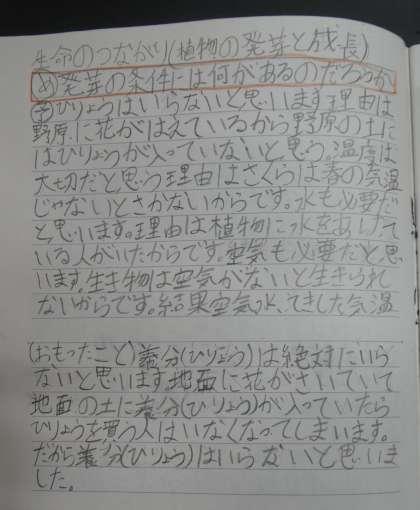 生命のつながり(植物の発芽と成長)
め発芽の条件には何があるのだろうか
予ひりょうはいらないと思います。理由は
野原に花がはえているから野原の土に
はひりょうが入っていないと思う。温度は
大切だと思う理由はさくらは春の気温
じゃないとさかないからです。水も必要だ
と思います。理由は植物に水をあげて
いる人がいたからです。空気も必要だと思
います。生き物は空気がないと生きられ
ないからです。結果空気、水、てきした気温
(おもったこと)養分(ひりょう)は絶対にいら
ないと思います。地面に花がさいていて
地面の土に養分(ひりょう)が入っていたら
ひりょうを買う人はいなくなってしまいます。
だから養分(ひりょう)はいらないと思いま
した。